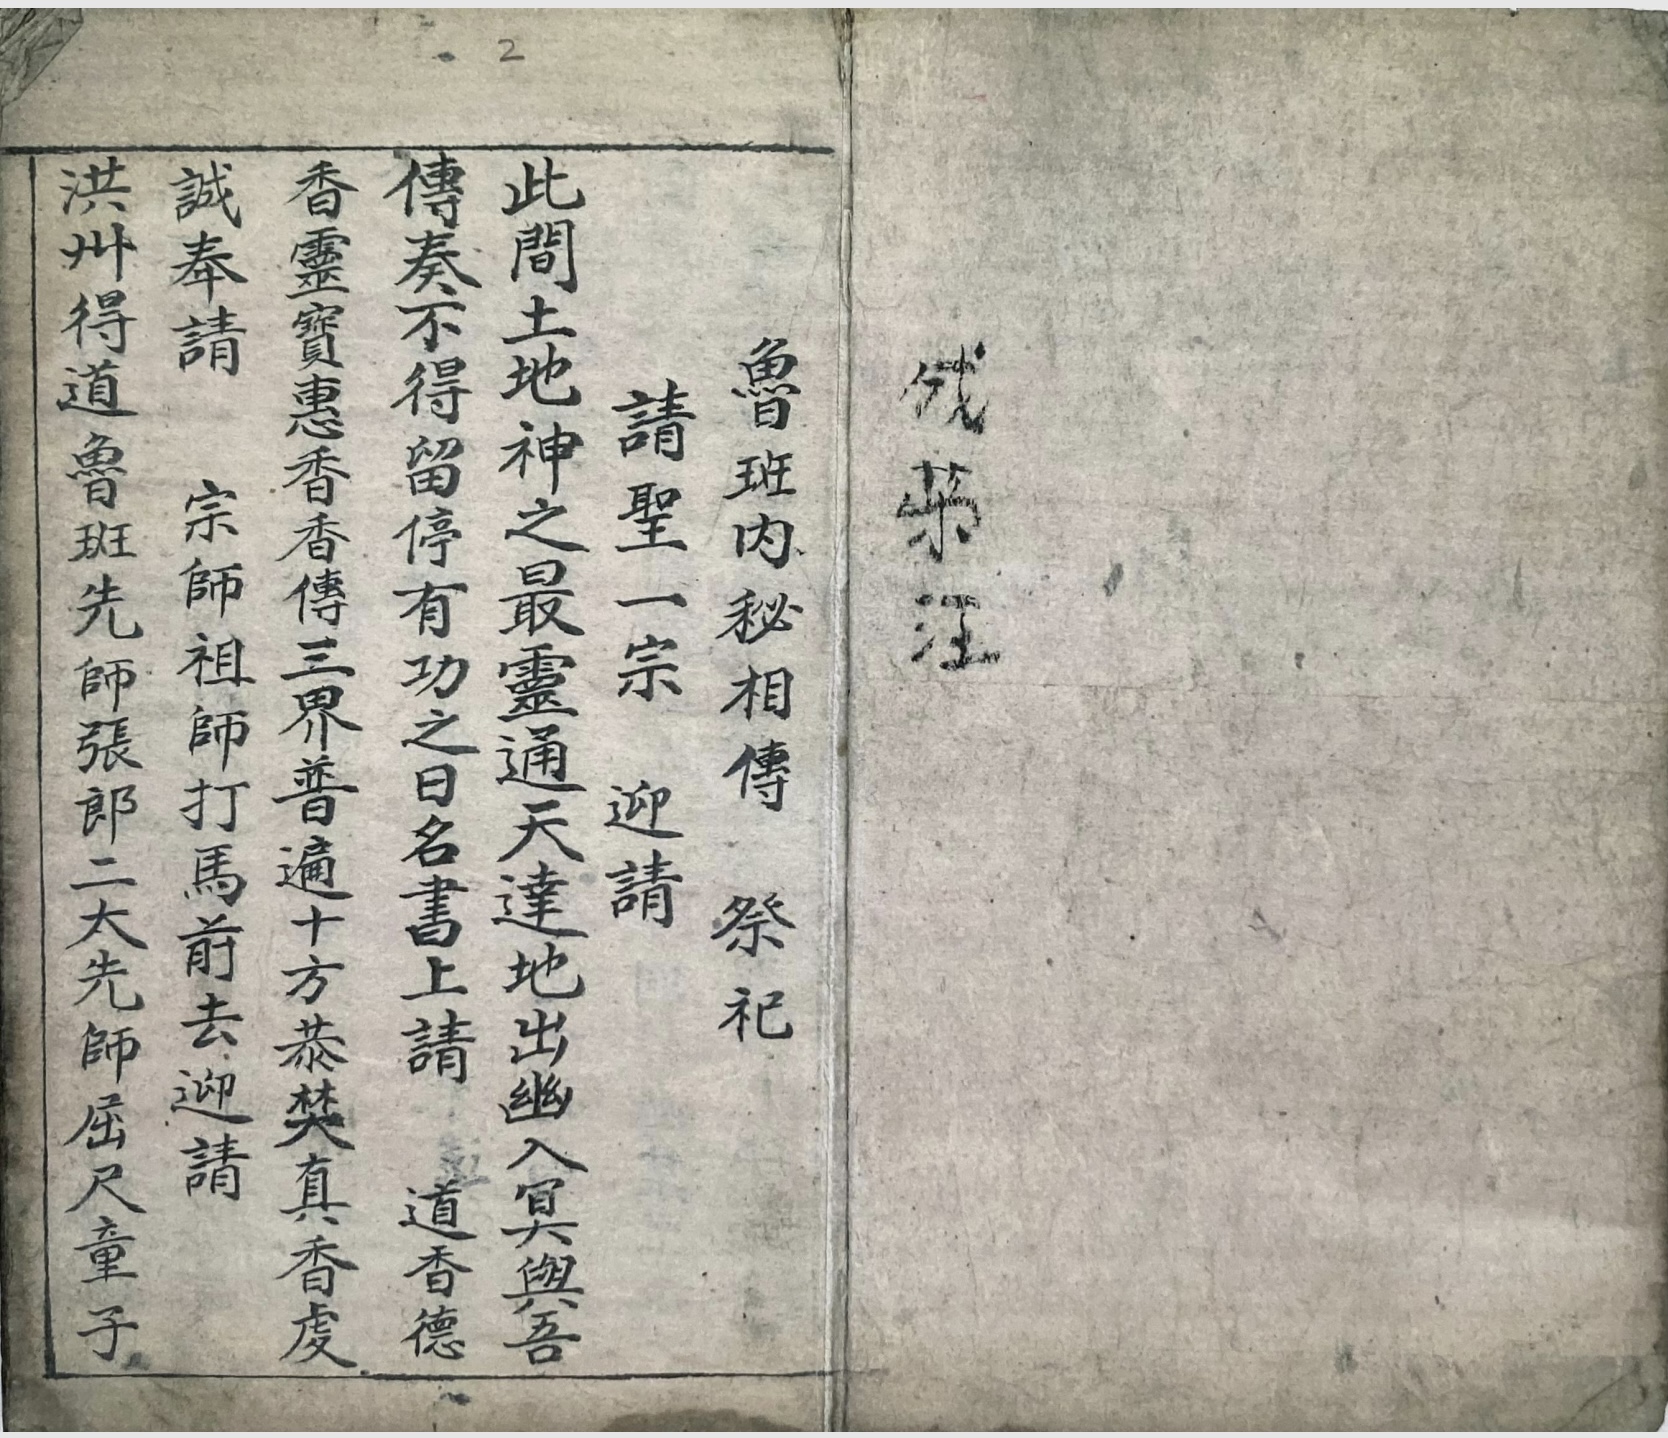 汪
2
魯班内秘相傳 祭祀
請聖一宗 迎請
此間土地神之最靈通天達地出幽入冥與吾
傳奏不得留停有功之日名書上請 道香德
香靈寶惠香香傳三界普遍十方恭焚真香虔
誠奉請 宗師祖師打馬前去迎請
洪州得道魯班先師張郎二太先師屈尺童子